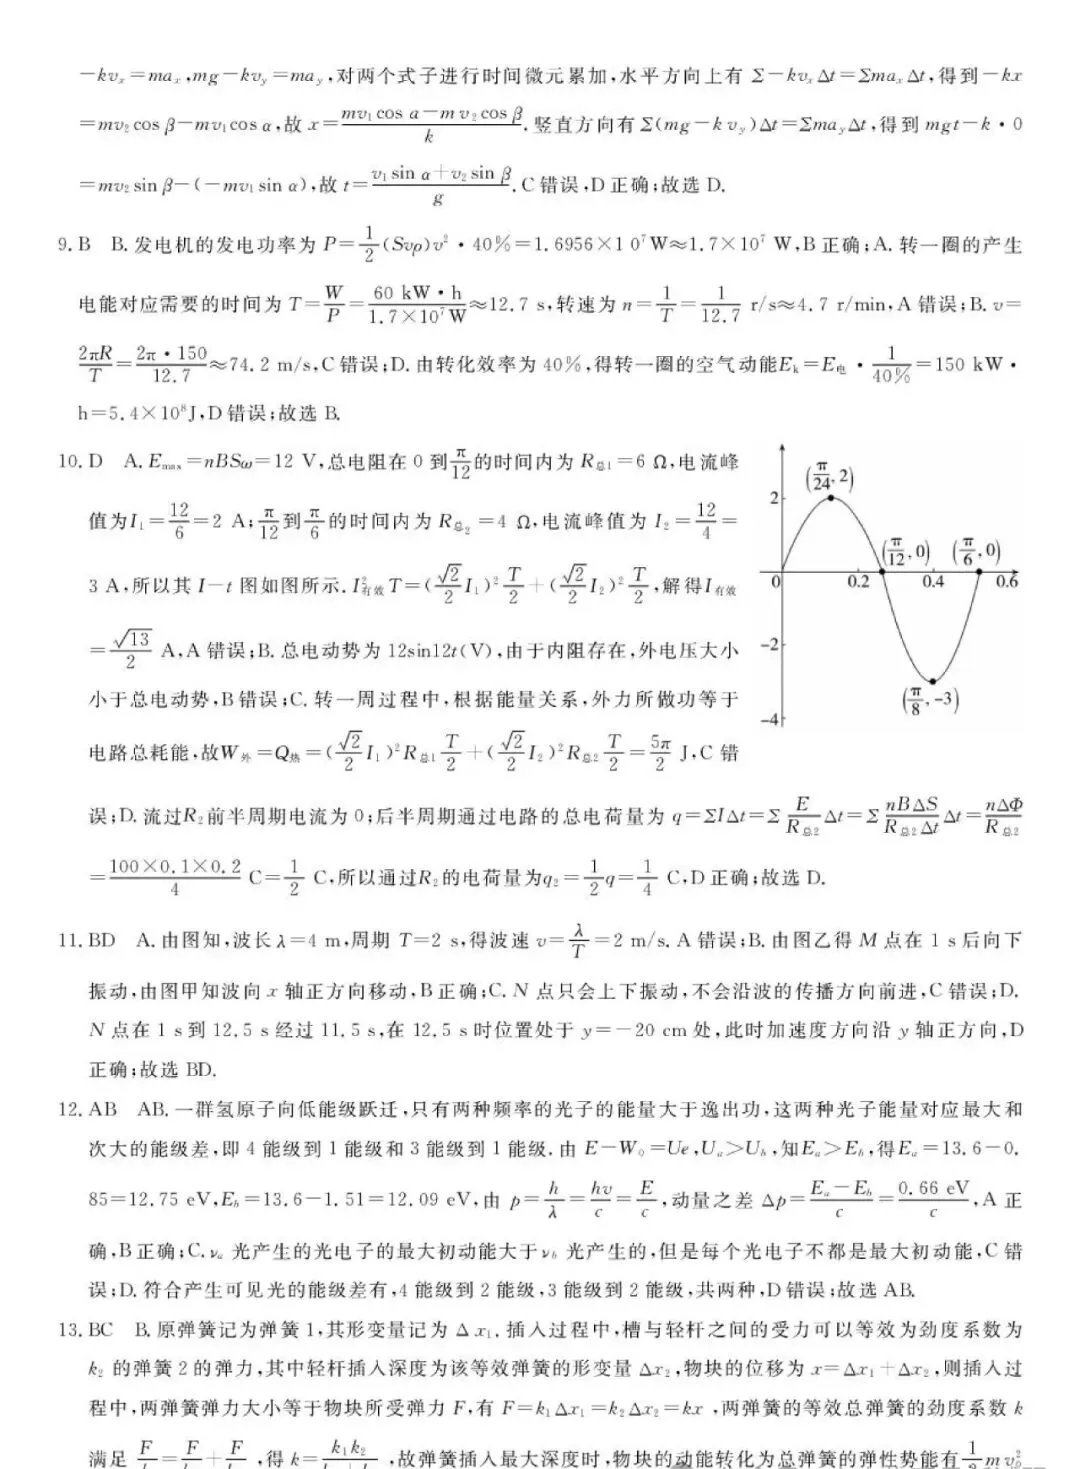 −kvₓ=maₓ,mg−kvᵧ=maᵧ,对两个式子进行时间微元累加,水平方向上有 Σ−kvₓΔt=ΣmaₓΔt,得到−kx
=mv₂cos β−mv₁cos α,故 x=(mv₁cos α−mv₂cos β)/k.竖直方向有 Σ(mg−kvᵧ)Δt=ΣmaᵧΔt,得到 mgt−k·0
=mv₂sin β−(−mv₁sin α),故 t=(v₁sin α+v₂sin β)/g.C错误,D正确;故选 D.
9.B B.发电机的发电功率为 P=1/2(Svρ)v²·40%=1.6956×10⁷W≈1.7×10⁷ W,B正确;A.转一圈的产生
电能对应需要的时间为 T=W/P=60 kW·h/1.7×10⁷W≈12.7 s,转速为 n=1/T=1/12.7 r/s≈4.7 r/min,A错误;B.v=
2πR/T=2π·150/12.7≈74.2 m/s,C错误;D.由转化效率为 40%,得转一圈的空气动能Eₖ=E电·1/40%=150 kW·
h=5.4×10⁸J,D错误;故选 B.
10.D A.Emax=nBSω=12 V,总电阻在 0 到π/12的时间内为 R总1=6 Ω,电流峰
值为I₁=12/6=2 A;π/12到π/6的时间内为 R总2=4 Ω,电流峰值为 I₂=12/4=
3 A,所以其 I−t 图如图所示.I²有效T=(√2/2 I₁)²T/2+(√2/2 I₂)²T/2,解得I有效
=√13/2 A,A错误;B.总电动势为 12sin12t(V),由于内阻存在,外电压大小
小于总电动势,B错误;C.转一周过程中,根据能量关系,外力所做功等于
电路总耗能,故W外=Q热=(√2/2 I₁)²R总1 T/2+(√2/2 I₂)²R总2 T/2=5π/2 J,C错
2
0
−2
−4
0.2
0.4
0.6
(π/24,2)
(π/12,0)
(π/6,0)
(π/8,−3)
误;D.流过R₂前半周期电流为 0;后半周期通过电路的总电荷量为 q=ΣIΔt=Σ E/R总2 Δt=Σ nBΔS/R总2Δt Δt=nΔΦ/R总2
=100×0.1×0.2/4 C=1/2 C,所以通过R₂的电荷量为q₂=1/2q=1/4 C,D正确;故选 D.
11.BD A.由图知,波长 λ=4 m,周期 T=2 s,得波速 v=λ/T=2 m/s.A错误;B.由图乙得 M 点在 1 s 后向下
振动,由图甲知波向 x 轴正方向移动,B正确;C.N 点只会上下振动,不会沿波的传播方向前进,C错误;D.
N 点在 1 s 到 12.5 s 经过 11.5 s,在 12.5 s 时位置处于 y=−20 cm 处,此时加速度方向沿 y 轴正方向,D
正确;故选 BD.
12.AB AB.一群氢原子向低能级跃迁,只有两种频率的光子的能量大于逸出功,这两种光子能量对应最大和
次大的能级差,即 4 能级到 1 能级和 3 能级到 1 能级.由 E−W₀=Ue,Uₐ>U_b,知Eₐ>E_b,得Eₐ=13.6−0.
85=12.75 eV,E_b=13.6−1.51=12.09 eV,由 p=h/λ=hν/c=E/c,动量之差 Δp=(Eₐ−E_b)/c=0.66 eV/c,A正
确,B正确;C.νₐ 光产生的光电子的最大初动能大于ν_b 光产生的,但是每个光电子不都是最大初动能,C错
误;D.符合产生可见光的能级差有,4 能级到 2 能级,3 能级到 2 能级,共两种,D错误;故选 AB.
13.BC B.原弹簧记为弹簧 1,其形变量记为 Δx₁.插入过程中,槽与轻杆之间的受力可以等效为劲度系数为
k₂ 的弹簧 2 的弹力,其中轻杆插入深度为该等效弹簧的形变量 Δx₂,物块的位移为 x=Δx₁+Δx₂,则插入过
程中,两弹簧弹力大小等于物块所受弹力 F,有 F=k₁Δx₁=k₂Δx₂=kx,两弹簧的等效总弹簧的劲度系数 k
满足 F=F+F,得 k=k₁k₂,故弹簧插入最大深度时,物块的动能转化为总弹簧的弹性势能有 1 mv₀²